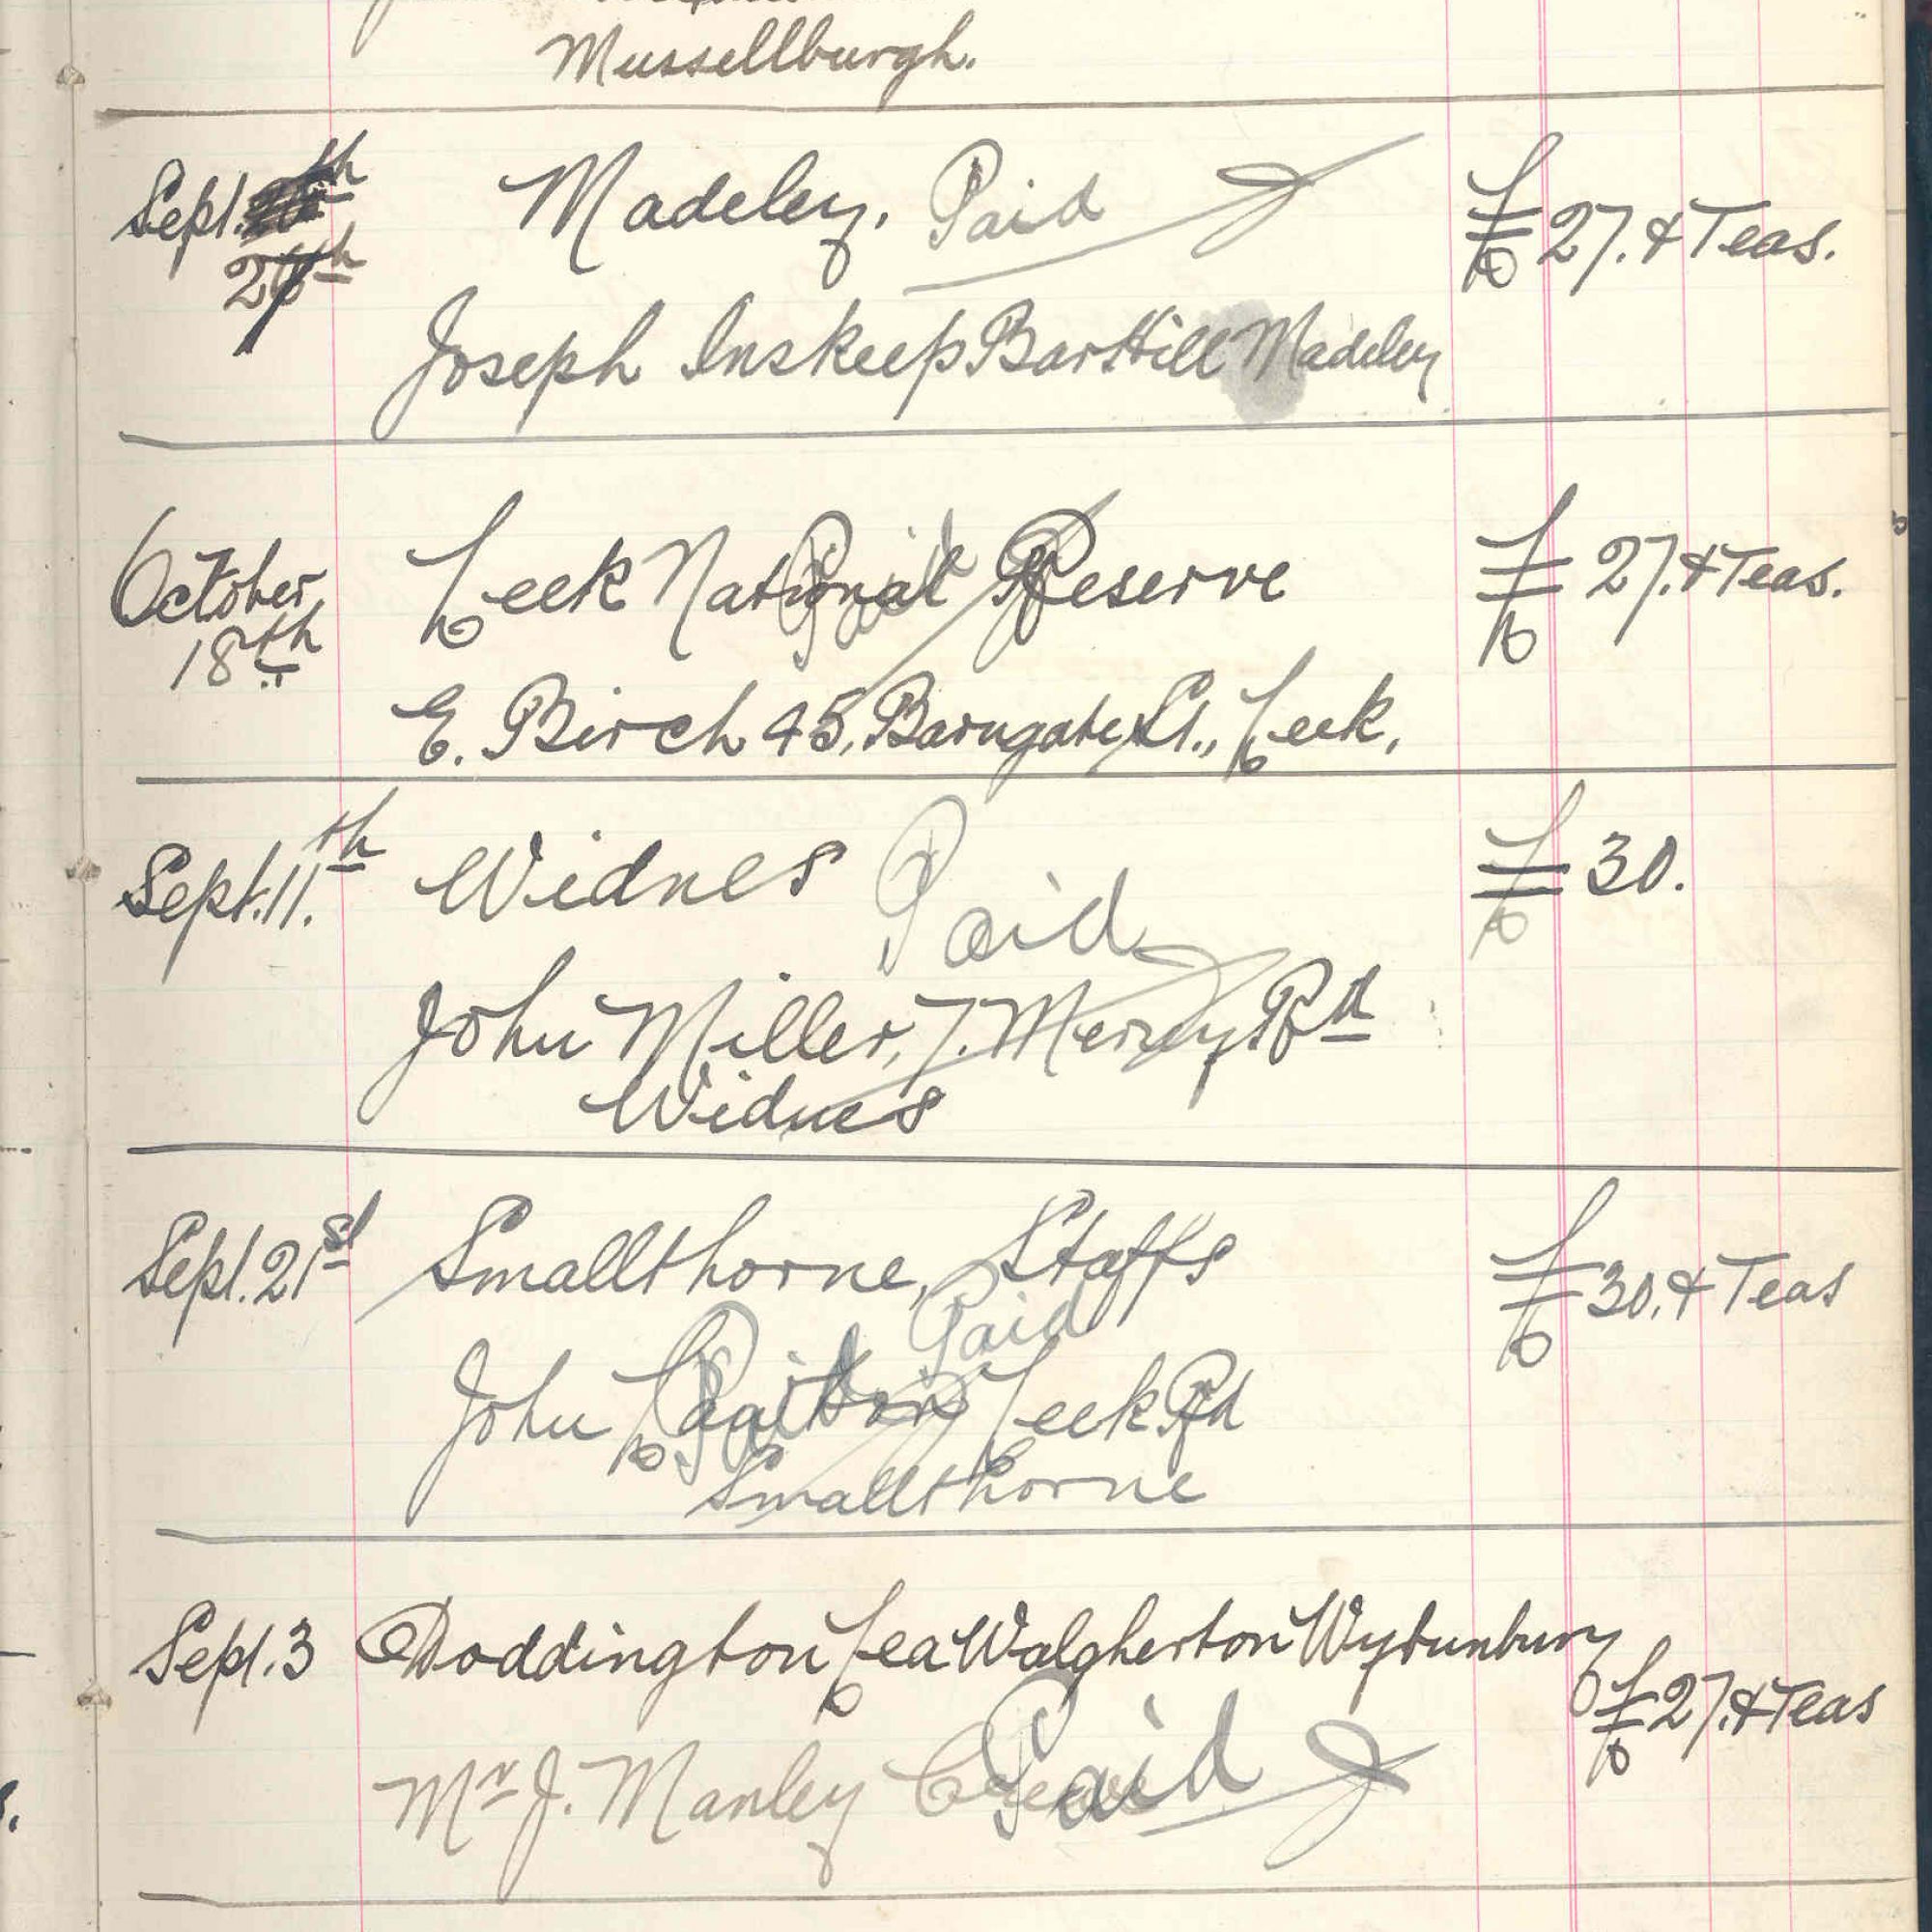 Mussellburgh.
Sept. 27th Madeley. Paid £27. & Teas.
Joseph Inskeep Bar Hill Madeley
October 18th Leek National Reserve Paid £27. & Teas.
E. Birch 45, Barngate St., Leek.
Sept. 11th Widnes Paid £30.
John Miller, 7. Mersey Rd
Widnes
Sept. 21st Smallthorne, Staffs £30. & Teas
Paid
John Leek Rd
Paid
Smallthorne
Sept. 3 Doddington Lea Walgherton Wybunbury £27. & Teas
Mr J. Manley Crewe Paid